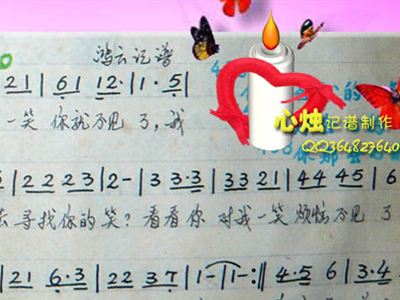 鸿云记谱
21 | 61 12· | 1·5 |
一笑 你就不见了,我
心烛记谱制作
QQ364827640
5 | 2 2 2 3 | 2- | 3 3·3 | 33 21 | 44 45 | 6
去寻找你的笑?看看你 对我一笑 烦恼不见了
| 21 6·3 | 22 37 | 1- | 1- :‖ 4·5 6 | 3·4